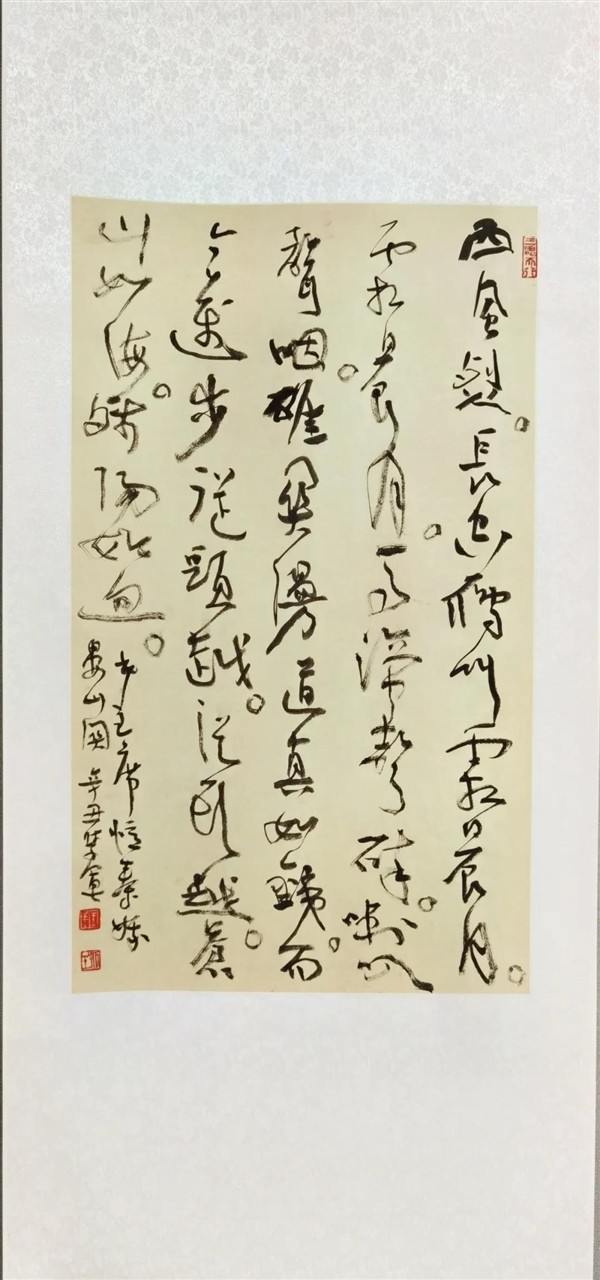 西風烈。長空雁叫霜晨月。
霜晨月。馬蹄聲碎。喇叭
聲咽。雄關漫道真如鐵。而
今邁步從頭越。從頭越。蒼
山如海。殘陽如血。
毛主席憶秦娥
婁山關 辛丑